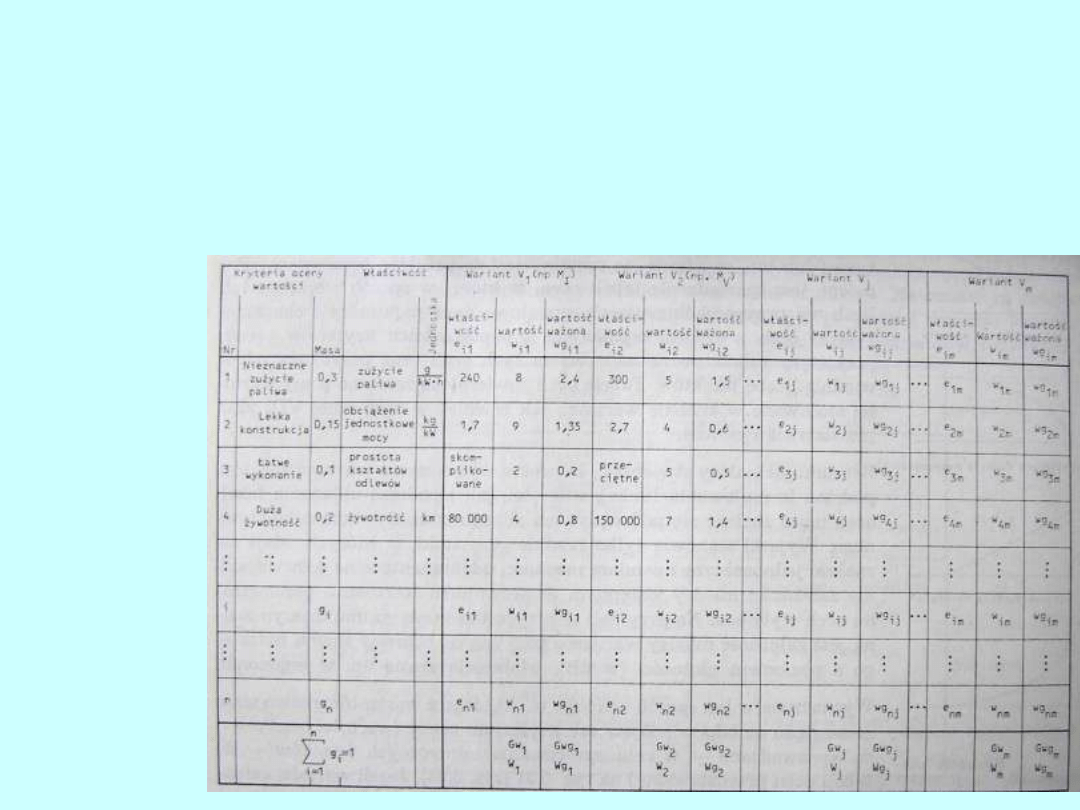 Kryteria oceny wartości | Właściwość | Wariant V₁(np M_I) | Wariant V₂(np. M_V) | Wariant V_j | Wariant V_m
Nr | Masa | Jednostka | właści-wość e_i1 | wartość w_i1 | wartość ważona wg_i1 | właści-wość e_i2 | wartość w_i2 | wartość ważona wg_i2 | właści-wość e_ij | wartość w_ij | wartość ważona wg_ij | właści-wość e_im | Wartość w_im | wartość ważona wg_im
1 | Nieznaczne zużycie paliwa | 0,3 | zużycie paliwa | g/kW·h | 240 | 8 | 2,4 | 300 | 5 | 1,5 | ... | e_1j | w_1j | wg_1j | ... | e_1m | w_1m | wg_1m
2 | Lekka konstrukcja | 0,15 | obciążenie jednostkowe mocy | kg/kW | 1,7 | 9 | 1,35 | 2,7 | 4 | 0,6 | ... | e_2j | w_2j | wg_2j | ... | e_2m | w_2m | wg_2m
3 | Łatwe wykonanie | 0,1 | prostota kształtów odlewów | skom-pliko-wane | 2 | 0,2 | prze-ciętne | 5 | 0,5 | ... | e_3j | w_3j | wg_3j | ... | e_3m | w_3m | wg_3m
4 | Duża żywotność | 0,2 | żywotność | km | 80 000 | 4 | 0,8 | 150 000 | 7 | 1,4 | ... | e_4j | w_4j | wg_4j | ... | e_4m | w_4m | wg_4m
i | g_i | e_i1 | w_i1 | wg_i1 | e_i2 | w_i2 | wg_i2 | ... | e_ij | w_ij | wg_ij | ... | e_im | w_im | wg_im
n | g_n | e_n1 | w_n1 | wg_n1 | e_n2 | w_n2 | wg_n2 | ... | e_nj | w_nj | wg_nj | ... | e_nm | w_nm | wg_nm
n
∑ g_i=1 | Gw₁ | Gwg₁ | Gw₂ | Gwg₂ | Gw_j | Gwg_j | Gw_m | Gwg_m
i=1 | W₁ | Wg₁ | W₂ | Wg₂ | W_j | Wg_j | W_m | Wg_m